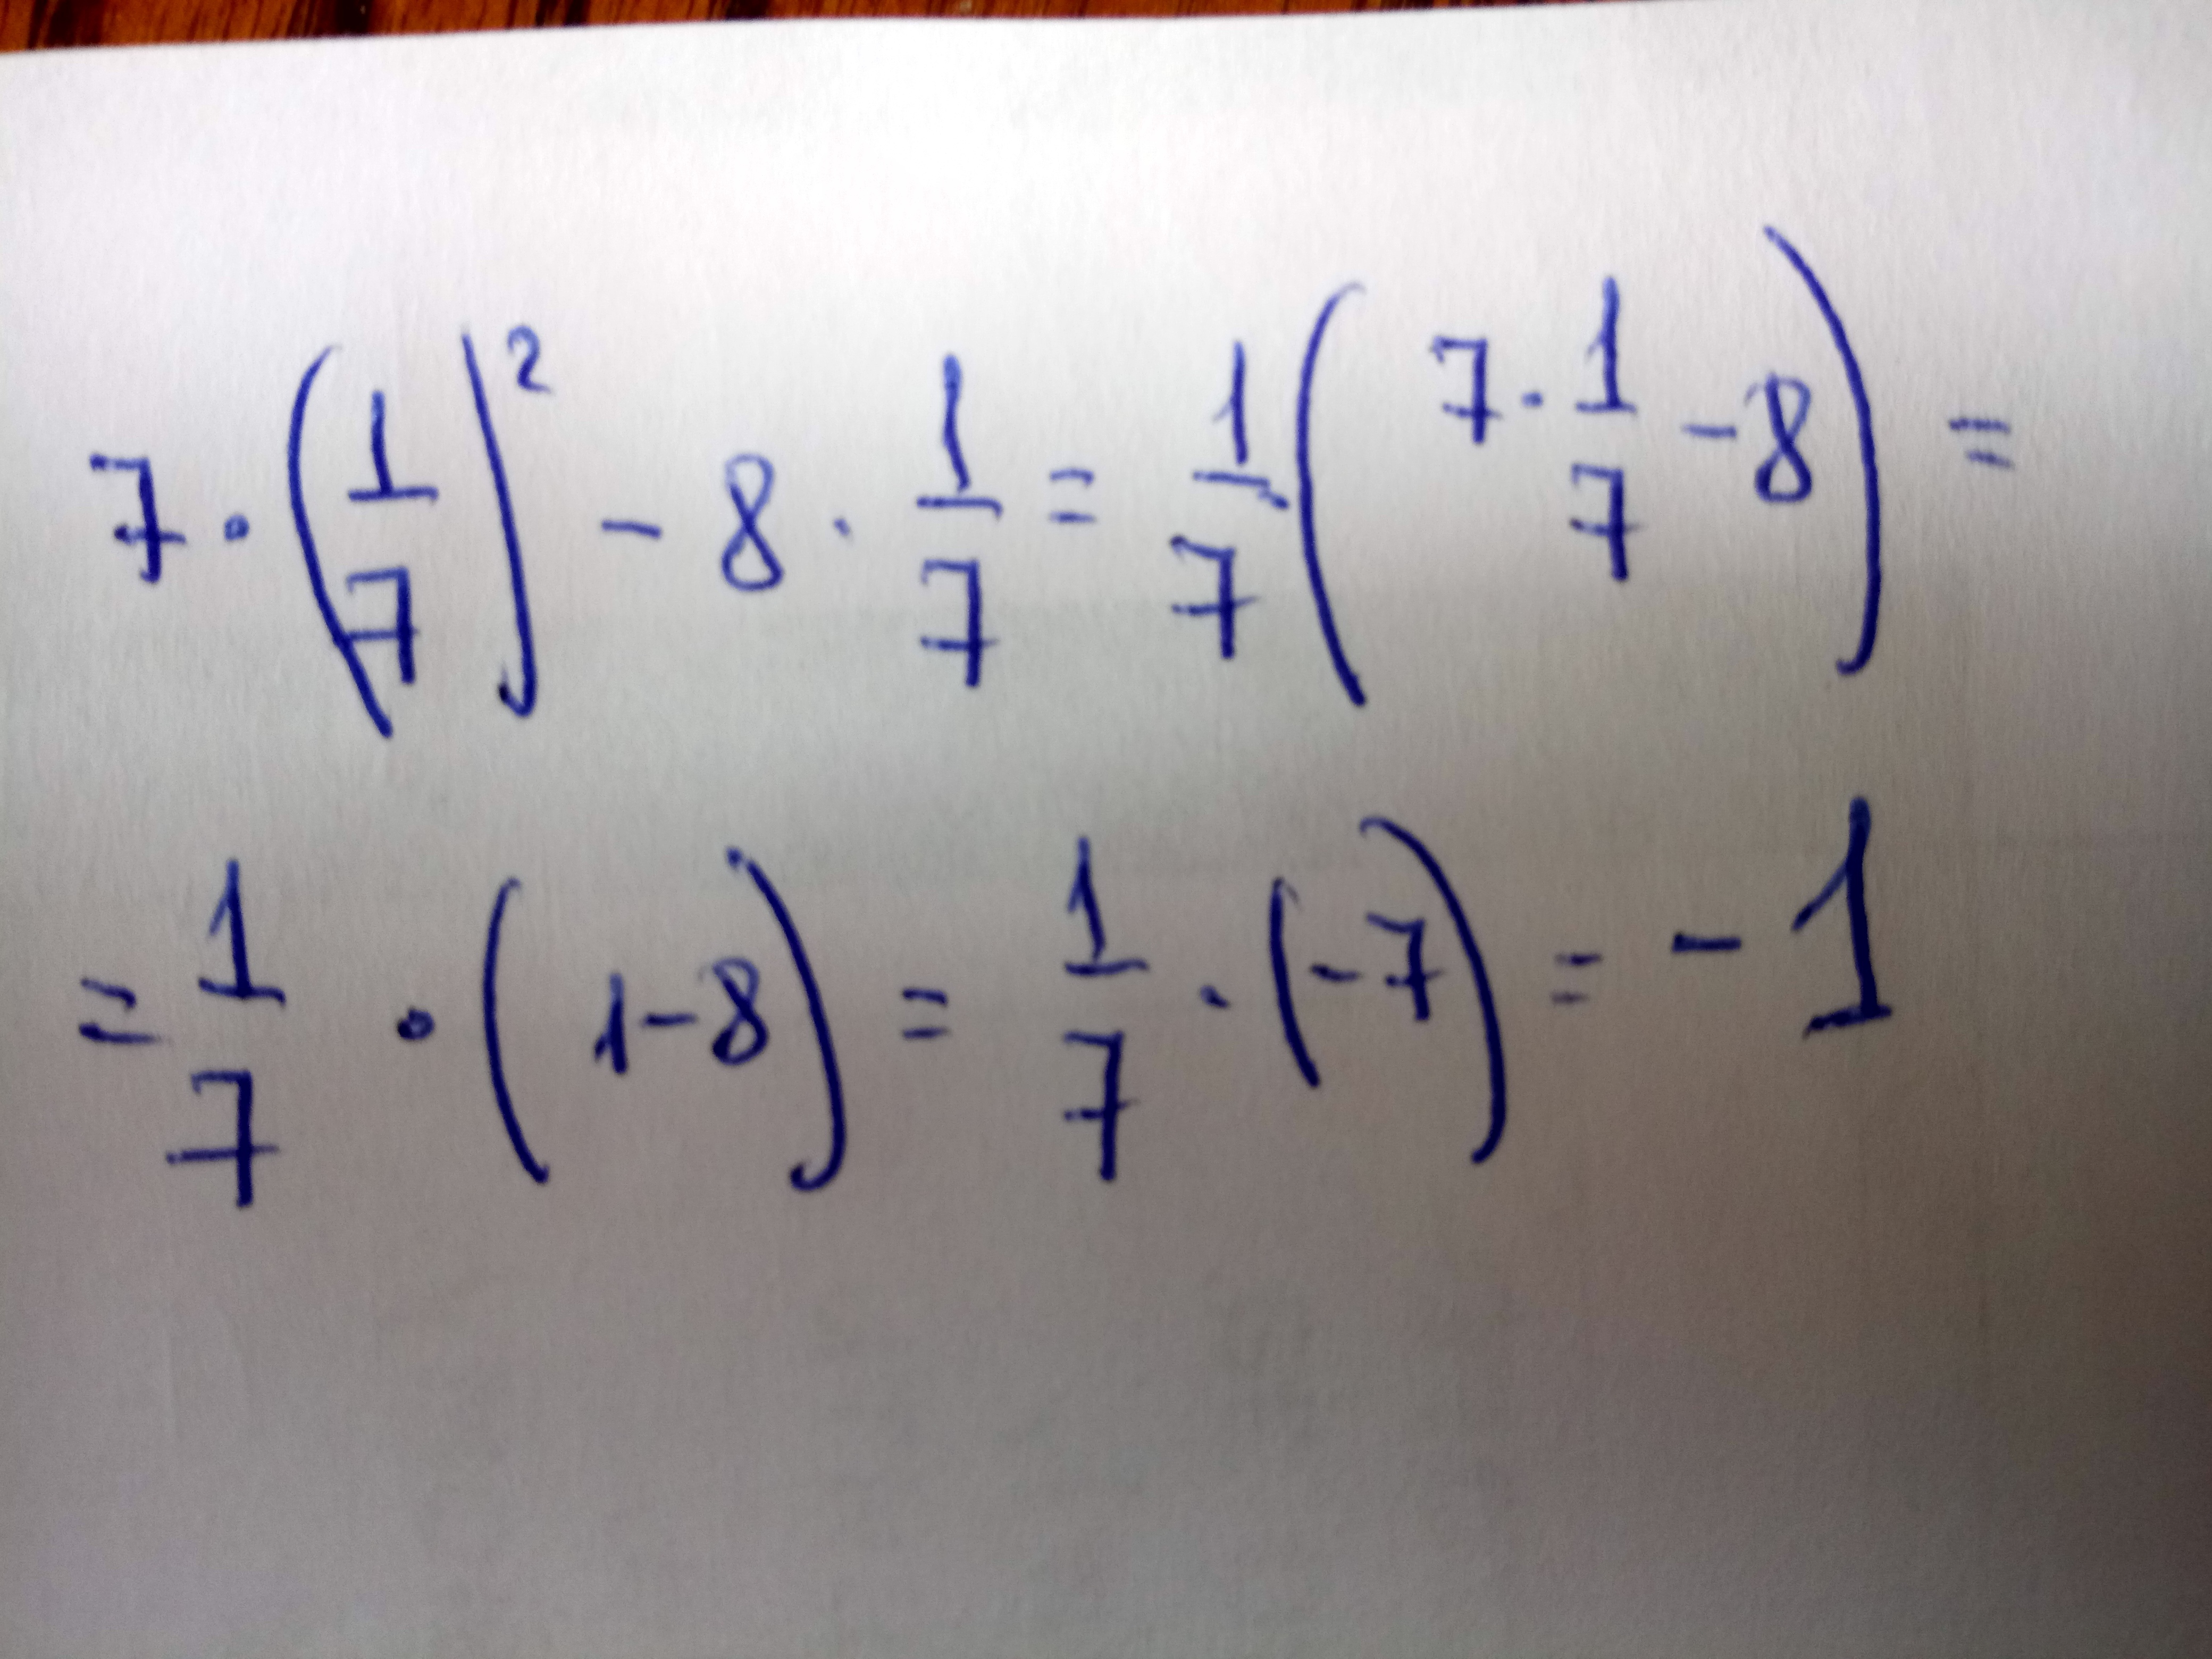 7 · (1/7)² - 8 · 1/7 = 1/7 (7 · 1/7 - 8) =
= 1/7 · (1 - 8) = 1/7 · (-7) = -1